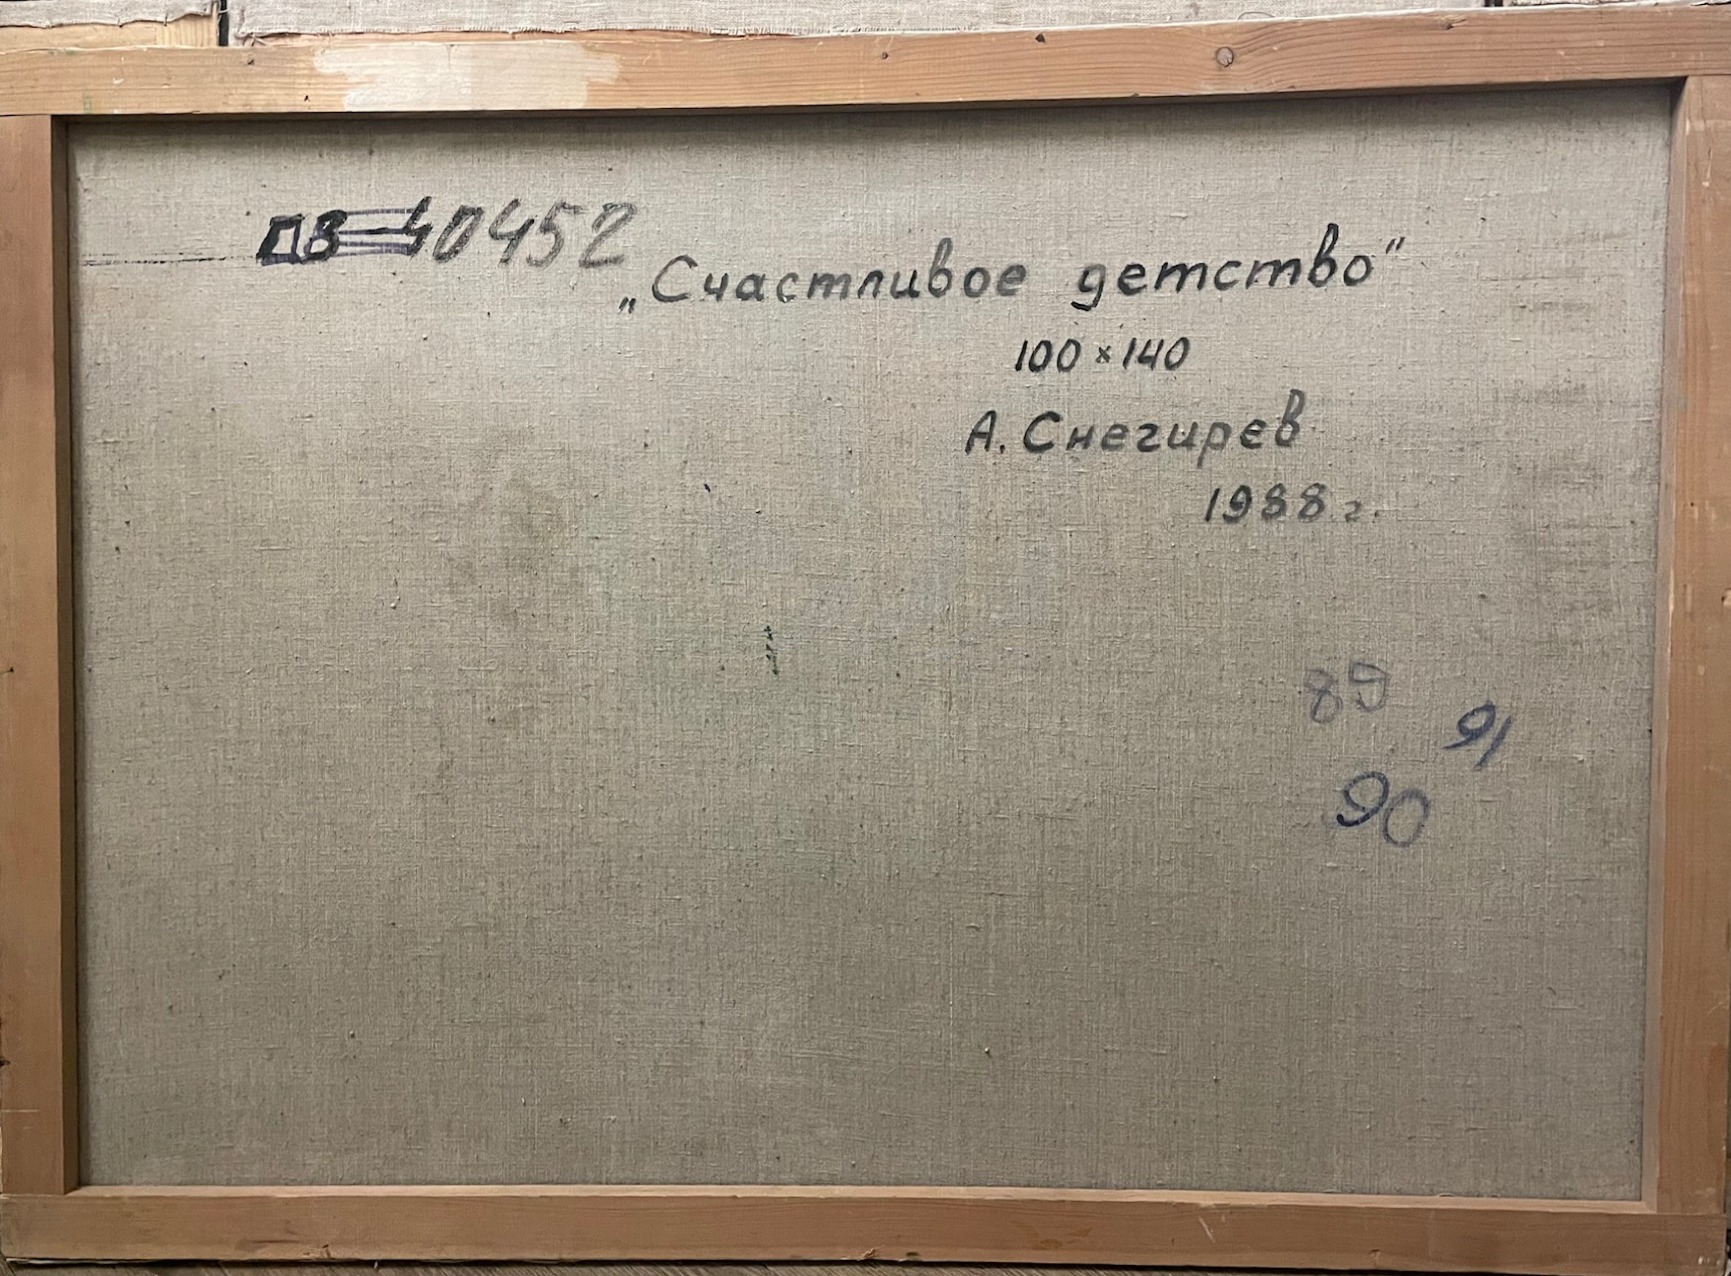 ПВ-40452
„Счастливое детство"
100 × 140
А. Снегирев
1988 г.
89
91
90